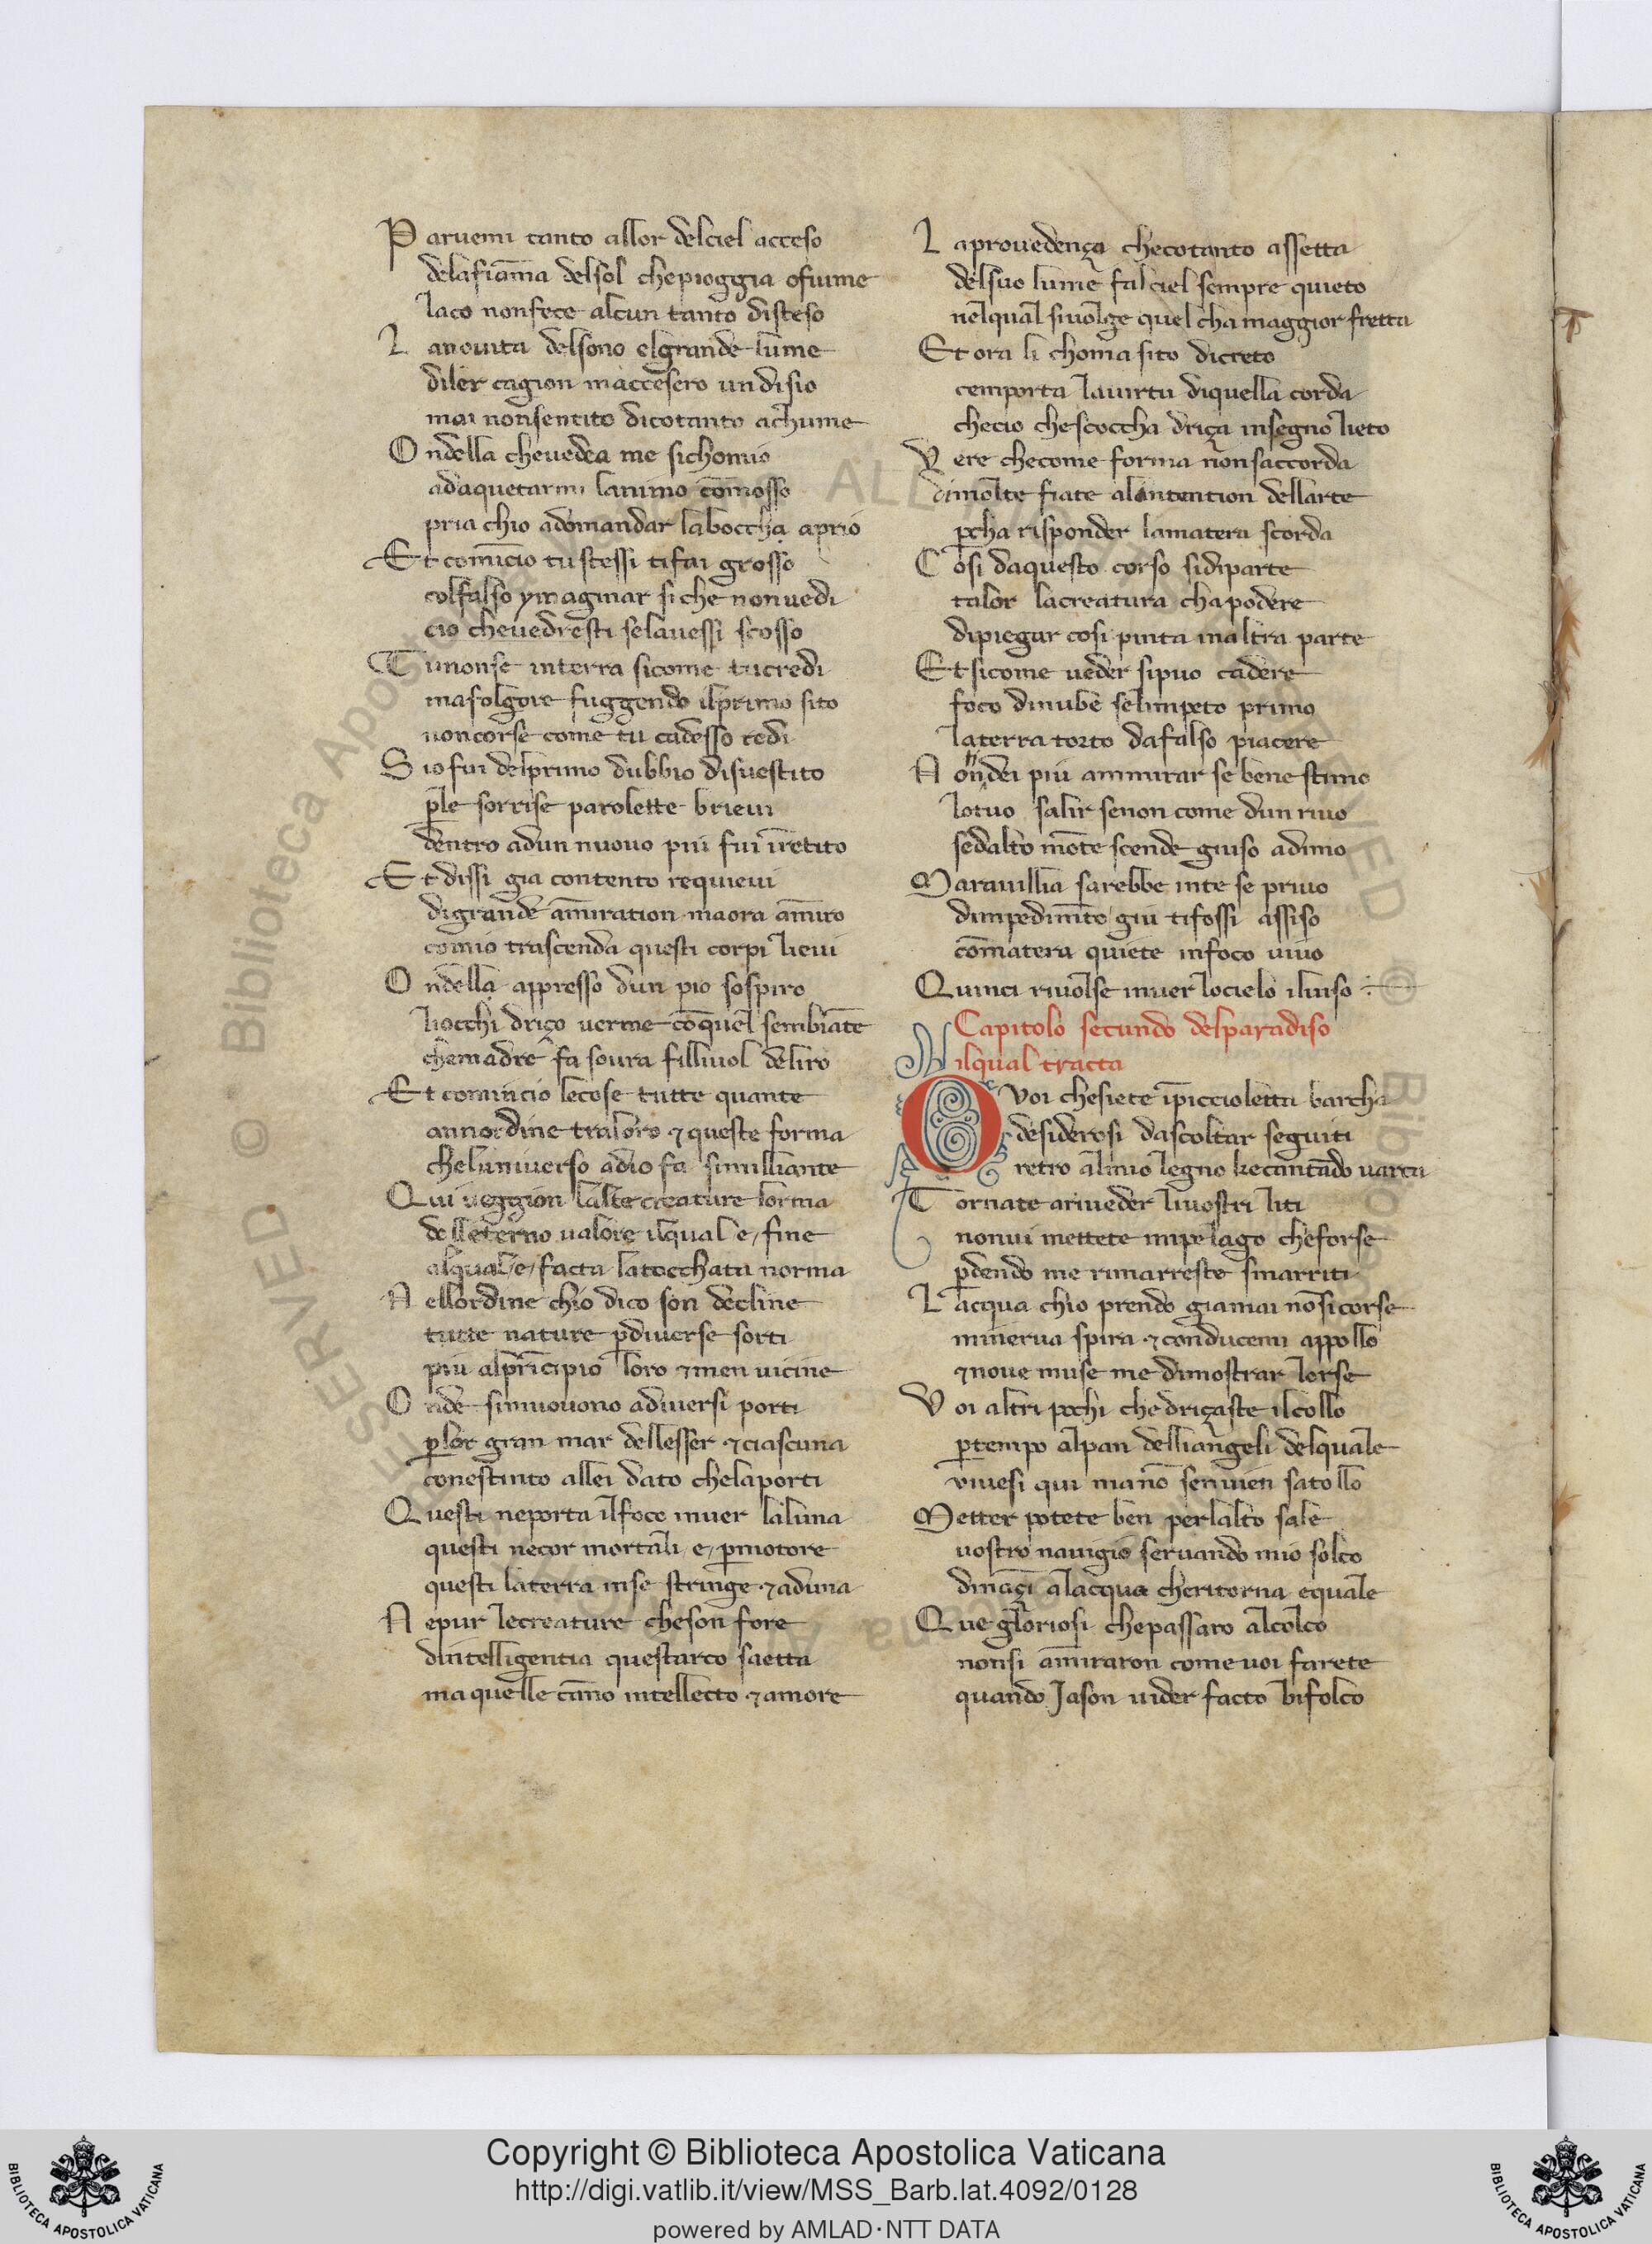 P aruemi tanto allor delciel acceso
delafiãma delsol chepioggia ofiume
laco nonfece alcun tanto disteso
L anouita delsono elgrande lume
diler cagion maccesero un disio
mai nonsentito dicotanto achume
O ndella cheuedea me sichomio
adaquetarmi lanimo cõmosso
pria chio adomandar laboccha aprio
Et comĩcio tu stessi tifai grosso
colfalso ymaginar si che nonuedi
cio cheuedresti selauessi scosso
T unonse interra sicome tucredi
mafolgore fuggendo ilprimo sito
noncorse come tu cadesso redi
S io fui delprimo dubbio disuestito
p̱le sorrise parolette brieui
dentro adun nuouo piu fui ĩretito
Et dissi gia contento requieui
digrande am̃iration maora am̃iro
comio trascenda questi corpi lieui
O ndella appresso dun pio sospiro
liocchi driço uerme cõquel sembiãte
chemadre fa soura filliuol deliro
Et comincio lecose tutte quante
annordine traloro ⁊ queste forma
cheluniuerso adio fa simulliante
Qui ueggion lalte creature lorma
delleterno ualore ilqual e, fine
alqual e, facta latocchata norma
N ellordine chio dico son decline
tutte nature p̱diuerse sorti
piu alprĩcipio loro ⁊ men uicine
O nde simuouono adiuersi porti
p̱lor gran mar dellesser ⁊ ciascuna
conestinto allei dato chelaporti
Questi neporta ilfoco inuer laluna
questi necor mortali e, p̱motore
questi laterra inse stringe ⁊ aduna
N epur lecreature cheson fore
dintelligentia questarco saetta
ma quelle cãno intellecto ⁊ amore
L aprouedença checotanto assetta
delsuo lume fal ciel sempre quieto
nelqual siuolge quel cha maggior fretta
Et ora li choma sito dicreto
cemporta lauirtu diquella corda
checio chescoccha driça insegno lieto
V ere checome forma nonsaccorda
dimolte fiate alantention dellarte
p̱cha risponder lamatera scorda
C osi daquesto corso sidiparte
talor lacreatura chapodere
dipiegar cosi pinta inaltra parte
Et sicome ueder sipuo cadere
foco dinube selimpeto primo
laterra torto dafalso piacere
N on dei piu ammirar se bene stimo
lotuo salir senon come dun riuo
sedalto mõte scende giuso adimo
Marauillia sarebbe inte se priuo
dimpedimẽto giu tifossi assiso
cõmatera quiete infoco uiuo
Quinci riuolse inuer locielo iluiso
Capitolo secundo delparadiso
ilqual tracta
O Voi chesiete ĩpiccioletta barcha
desiderosi dascoltar seguiti
retro almio legno kecantãdo uarca
T ornate ariueder liuostri liti
nonui mettete impelago cheforse
p̱dendo me rimarreste smarriti
L acqua chio prendo giamai nõsicorse
minerua spira ⁊ conducemi appollo
⁊ noue muse me dimostrar lorse
V oi altri pochi che driçaste ilcollo
p̱tempo alpan delliangeli delquale
viuesi qui mañ senuien satollo
Metter potete ben perlalto sale
uostro nauigio seruando mio solco
dinãçi alacqua cheritorna equale
Que gloriosi chepassaro alcolco
nonsi am̃iraron come uoi farete
quando Jason uider facto bifolco
Copyright © Biblioteca Apostolica Vaticana
http://digi.vatlib.it/view/MSS_Barb.lat.4092/0128
powered by AMLAD·NTT DATA
BIBLIOTECA APOSTOLICA VATICANA
BIBLIOTECA APOSTOLICA VATICANA